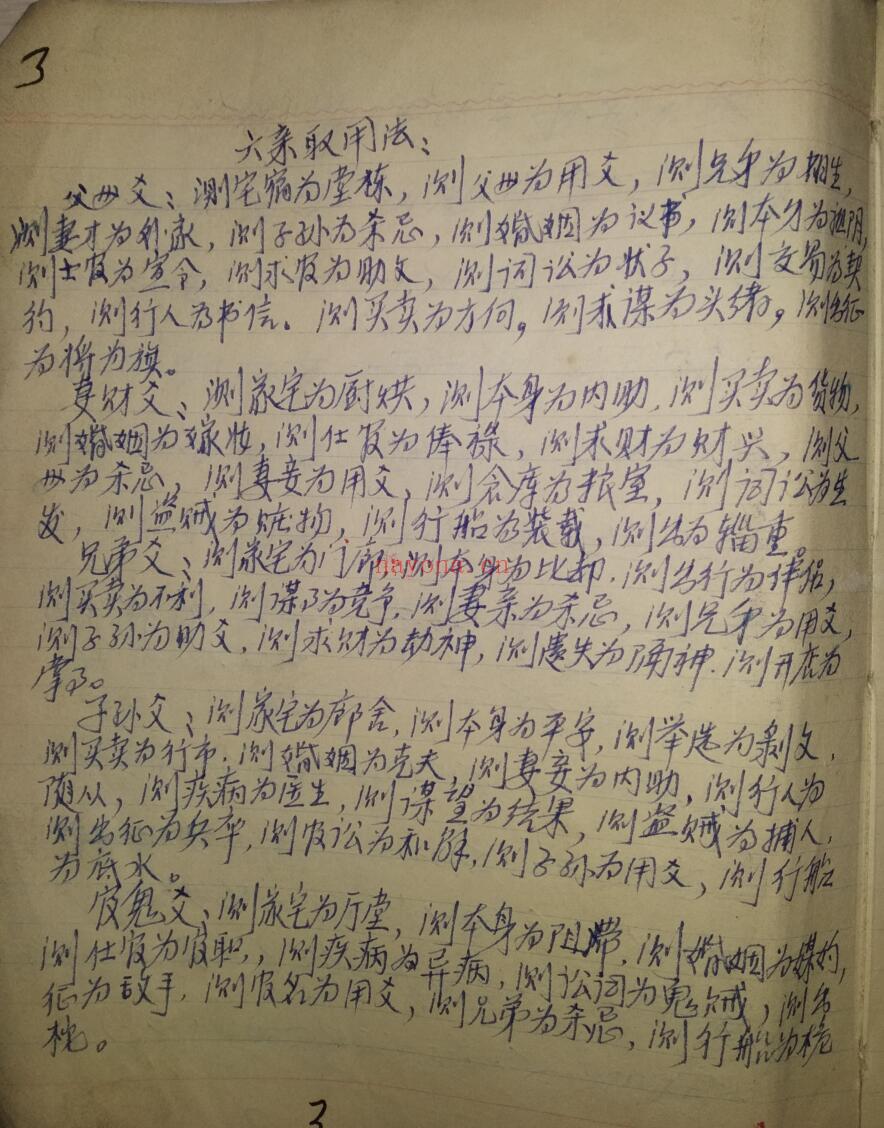 3
六亲取用法：
父母爻、测宅宿为堂栋，测父母为用爻，测兄弟为相生，
测妻才为外家，测子孙为杀忌，测婚姻为议书，测本身为祖阴，
测士官为宣令，测求官为助文，测词讼为状子，测交易为契
约，测行人为书信。测买卖为方何。测求谋为头绪。测出征
为将为旗。
妻财爻、测家宅为厨灶，测本身为内助，测买卖为货物，
测婚姻为嫁妆，测仕官为俸禄，测求财为财兴，测父
母为杀忌，测妻妾为用爻，测仓库为粮室，测词讼为生
发，测盗贼为赃物，测行船为装载，测出为辎重。
兄弟爻、测家宅为门廊，测本身为比却，测出行为伴侣，
测买卖为不利，测谋事为竞争，测妻亲为杀忌，测兄弟为用爻，
测子孙为助爻，测求财为劫神，测遗失为神，测开店为
掌事。
子孙爻、测家宅为廊舍，测本身为平安，测举选为剥文，
测买卖为行市，测婚姻为克夫，测妻妾为内助，测行人为
随从，测疾病为医生，测谋望为结果，测盗贼为捕人，
测出征为兵卒，测官讼为和解，测子孙为用爻，测行船
为底水。
官鬼爻、测家宅为厅堂，测本身为阻滞，测婚姻为媒妁，
测仕官为官职，测疾病为异病，测讼词为鬼贼，测出
征为敌手，测官名为用爻，测兄弟为杀忌，测行船为桅
桅。
3
hayona.cn